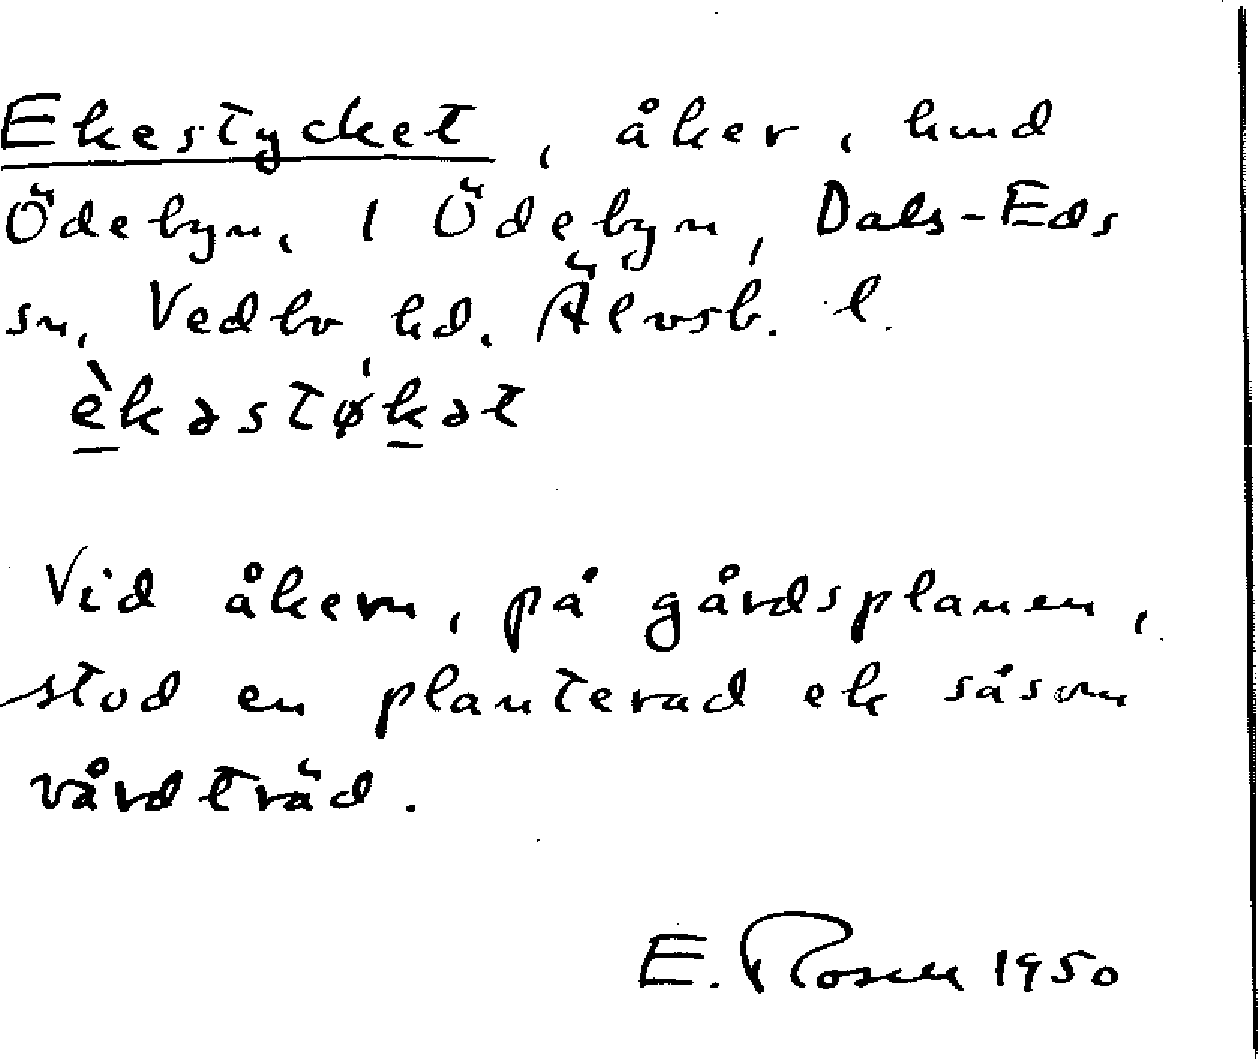 Ekestycket, åker, hmd
Ödebyn, 1 Ödebyn, Dals-Eds
sn, Vedbo hd. Älvsb. l.
èkǝstø̍kǝt
Vid åkern, på gårdsplanen,
stod en planterad ek såsom
vårdträd.
E. Rosell 1950